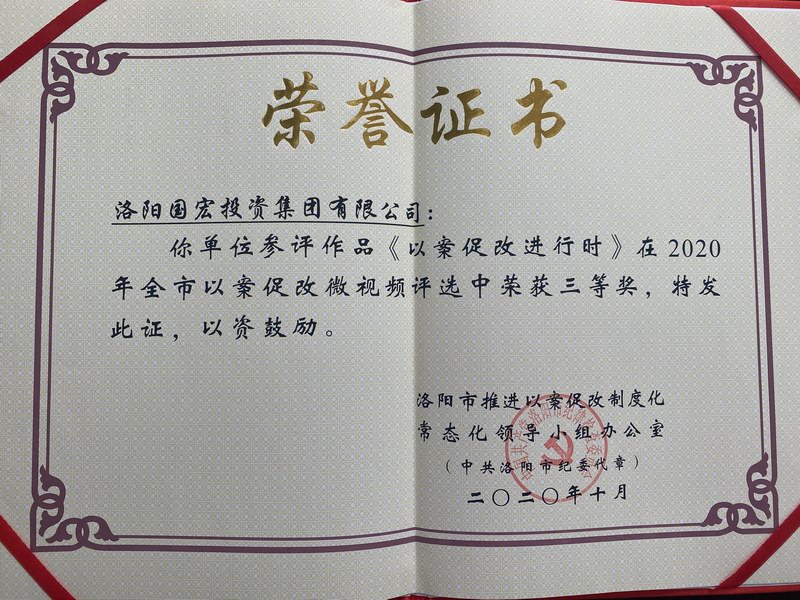 荣誉证书
洛阳国宏投资集团有限公司：
你单位参评作品《以案促改进行时》在2020
年全市以案促改微视频评选中荣获三等奖，特发
此证，以资鼓励。
洛阳市推进以案促改制度化
常态化领导小组办公室
（中共洛阳市纪委代章）
二〇二〇年十月